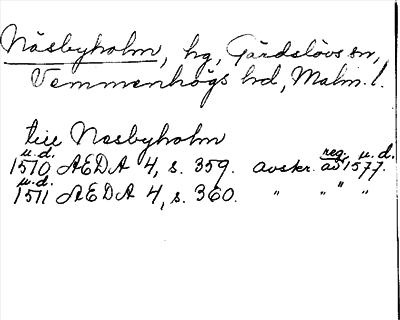 Näsbyholm, hg, Gärdslövs sn,
Vemmenhögs hd, Malm. l.
till Nesbyholm
u.d. reg. u.d.
1510 AEDA 4, s. 359. avskr. av 1577.
u.d.
1511 AEDA 4, s. 360. " " "